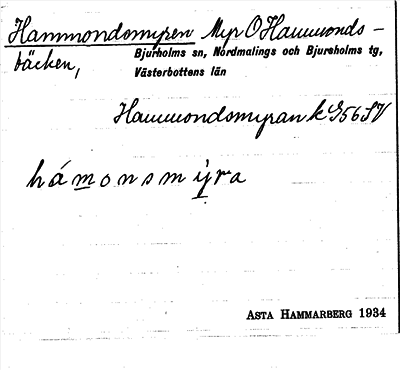 Hammondsmyren Myr O Hammonds-
bäcken, Bjurholms sn, Nordmalings och Bjurholms tg,
Västerbottens län
Hammondsmyran k G56SV
hámonsmýra
ASTA HAMMARBERG 1934